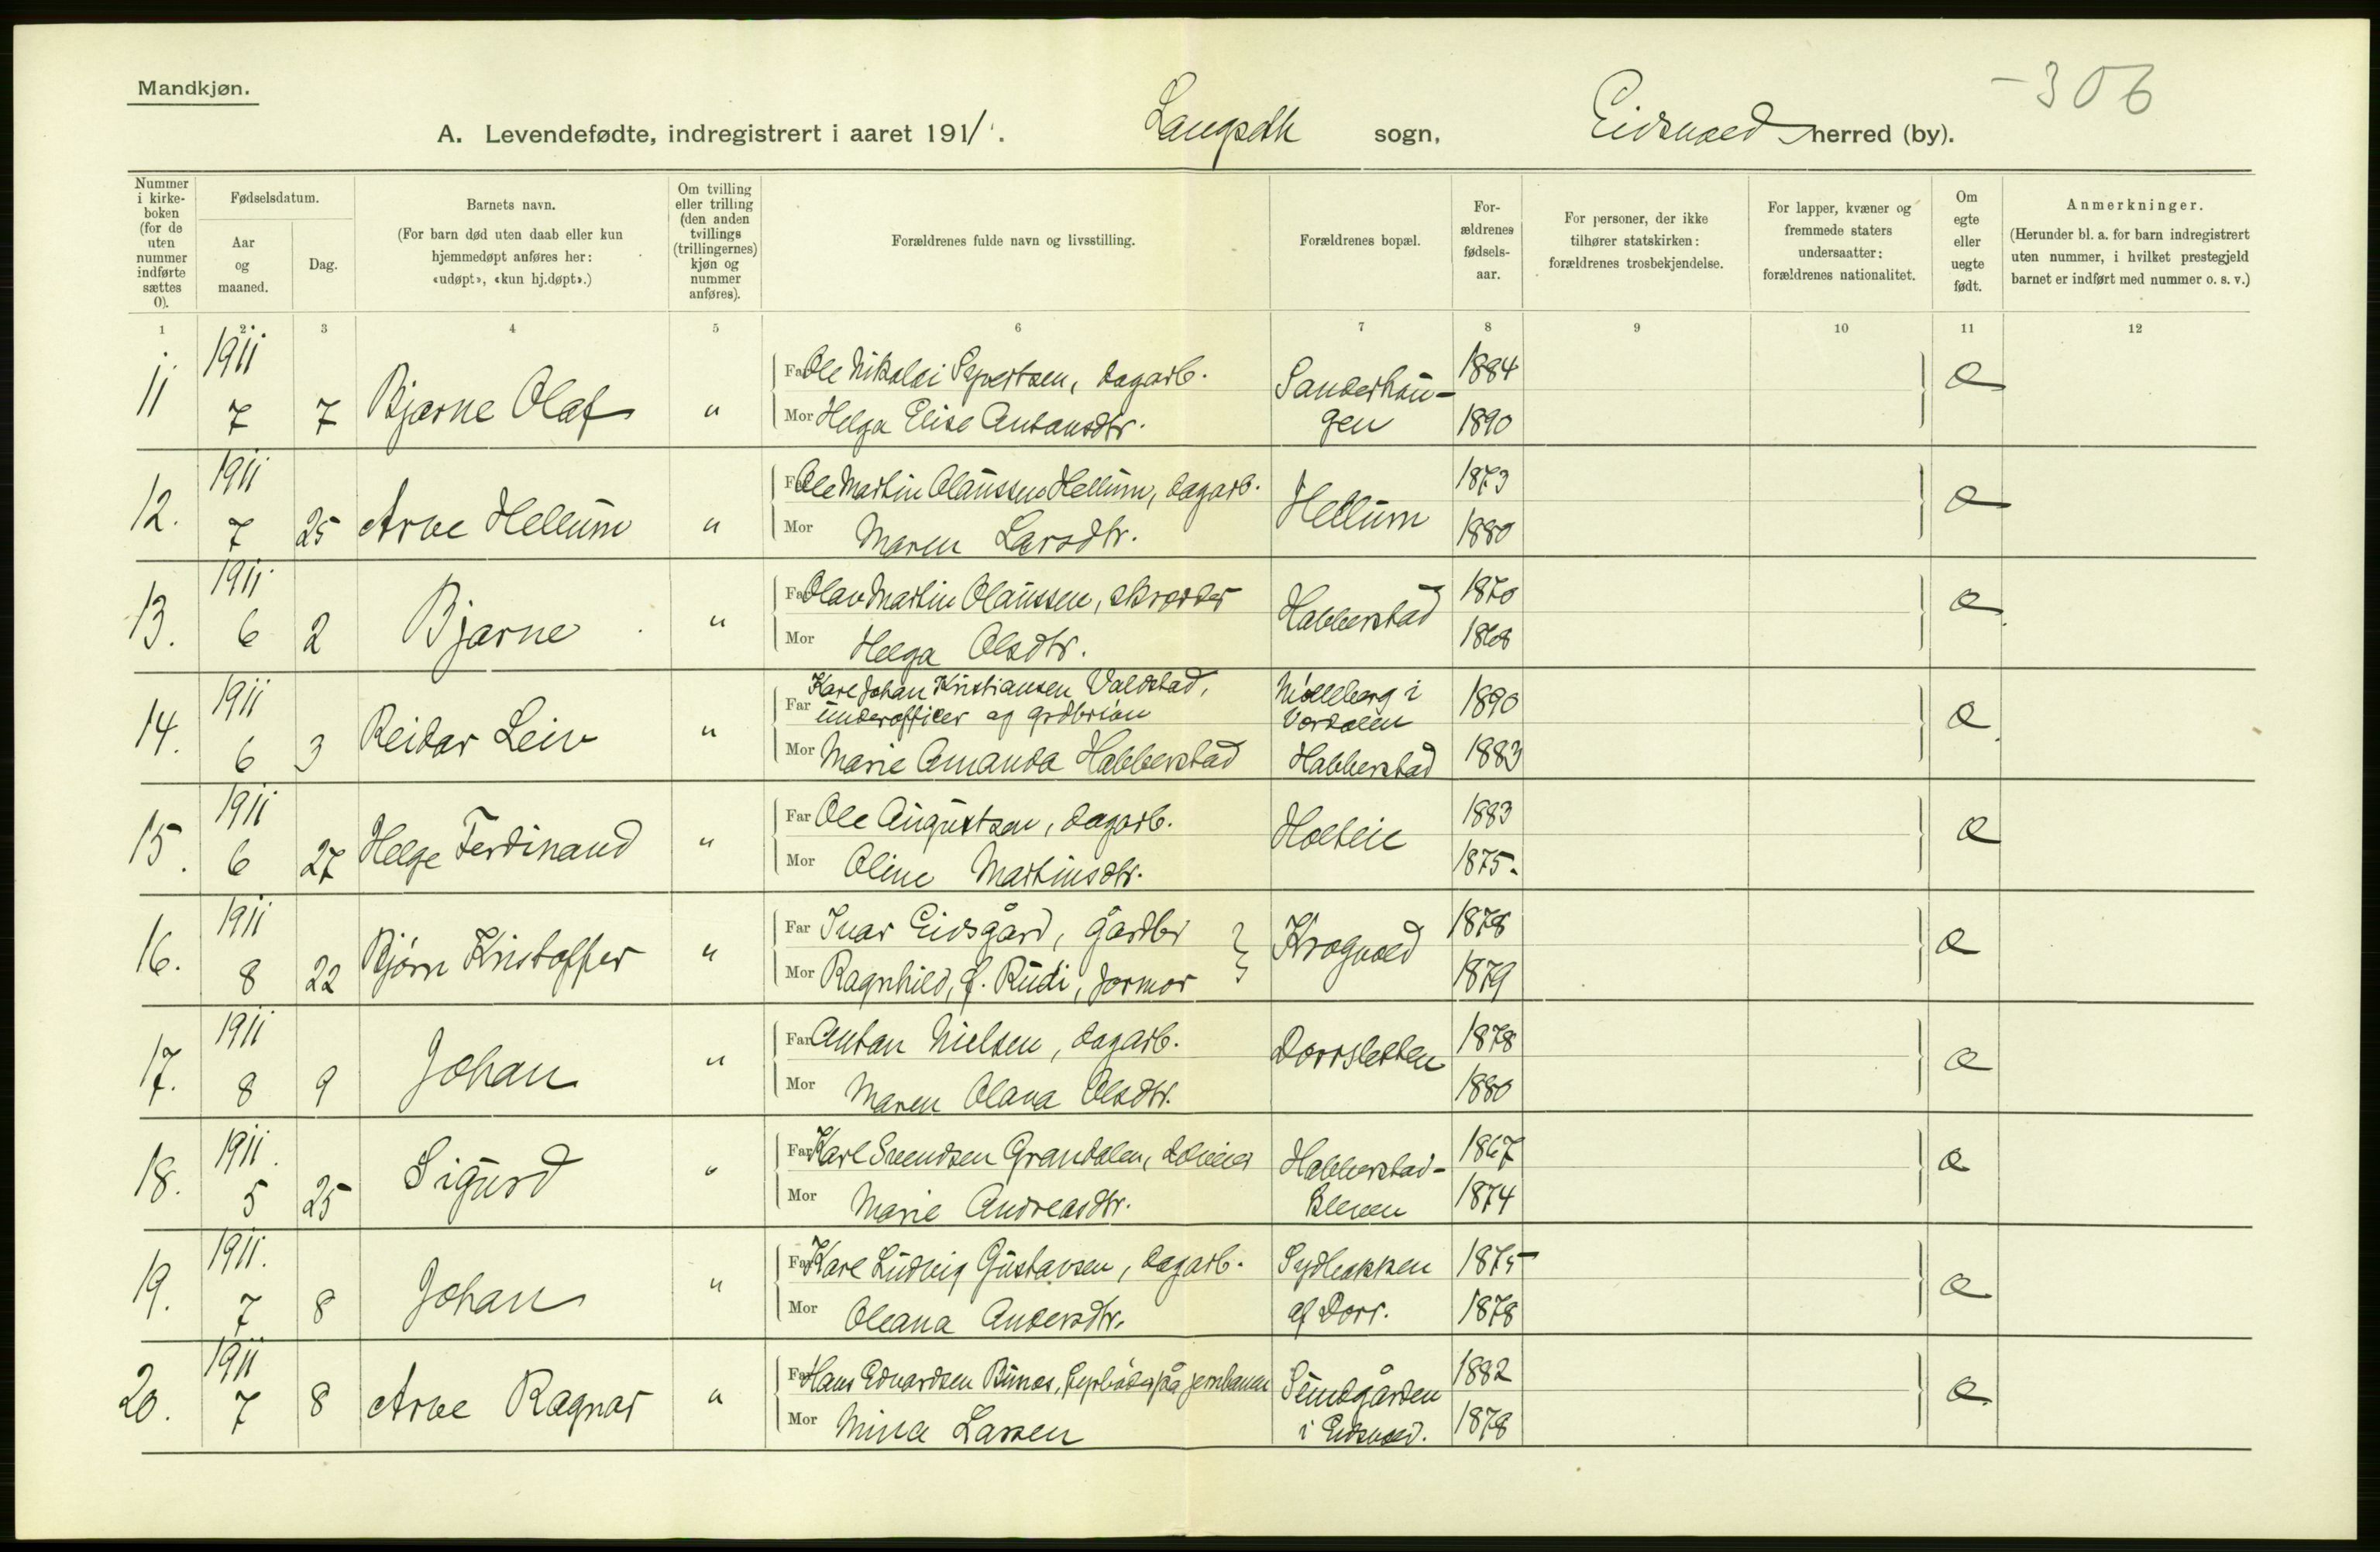 Mandkjøn.
-306
A. Levendefødte, indregistrert i aaret 1911. Langseth sogn, Eidsvold herred (by).
Nummer i kirkeboken (for de uten nummer indførte sættes 0).
Fødselsdatum.
Aar og maaned.
Dag.
Barnets navn.
(For barn død uten daab eller kun hjemmedøpt anføres her: «udøpt», «kun hj.døpt».)
Om tvilling eller trilling (den anden tvillings (trillingernes) kjøn og nummer anføres).
Forældrenes fulde navn og livsstilling.
Forældrenes bopæl.
Forældrenes fødselsaar.
For personer, der ikke tilhører statskirken: forældrenes trosbekjendelse.
For lapper, kvæner og fremmede staters undersaatter: forældrenes nationalitet.
Om egte eller uegte født.
Anmerkninger.
(Herunder bl. a. for barn indregistrert uten nummer, i hvilket prestegjeld barnet er indført med nummer o. s. v.)
1 2 3 4 5 6 7 8 9 10 11 12
11 1911 7 7 Bjarne Olaf "
Far Ole Nikolai Syvertsen, dagarb. Sanderhau- 1884
Mor Helga Elise Antonsdtr. gen 1890
12. 1911 7 25 Arve Hellum "
Far Ole Martin Olaussen Hellum, dagarb. Hellum 1873
Mor Maren Larsdtr. 1880
13. 1911 6 2 Bjarne "
Far Olav Martin Olaussen, skrædder Habberstad 1870
Mor Helga Olsdtr. 1868
14. 1911 6 3 Reidar Leiv "
Far Karl Johan Kristiansen Valdstad, underofficer og Mølleberg i Vordalen 1890
Mor Marie Amanda Habberstad Habberstad 1883
15. 1911 6 27 Helge Ferdinand "
Far Ole Augustsen, dagarb. 1883
Mor Oline Martinsdtr. 1875.
16. 1911 8 22 Bjørn Kristoffer "
Far Ivar Eidsgård, gardbr Krogvold 1878
Mor Ragnhild, f. Rudi, jormor 1879
17. 1911 8 9 Johan "
Far Anton Nielsen, dagarb. Dorrsletten 1878
Mor Maren Olava Olsdtr. 1880
18. 1911. 5 25 Sigurd "
Far Karl Svendsen Grandalen, Habberstad- 1867
Mor Marie Andreasdtr. 1874
19. 1911. 7 8 Johan "
Far Karl Ludvig Gustavsen, dagarb. Sydbakken 1875
Mor Oleana Andersdtr. af Dorr. 1878
20. 1911 7 8 Arve Ragnar "
Far Hans Edvardsen Bunæs, fyrbøder på jernbanen Sundgården 1882
Mor Mina Larsen i Eidsvold. 1878